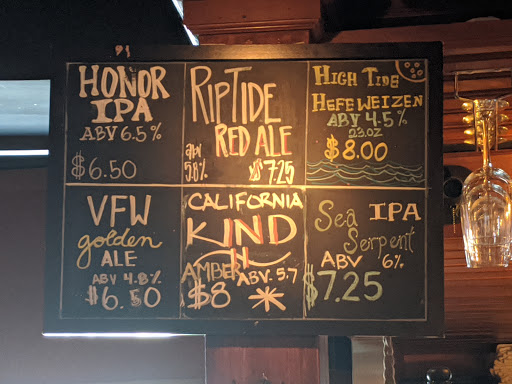 HONOR
IPA
ABV 6.5%
$6.50
RIPTIDE
RED ALE
ABV
5.8%
$7.25
HIGH TIDE
HEFEWEIZEN
ABV 4.5%
23OZ
$8.00
VFW
golden
ALE
ABV 4.8%
$6.50
CALIFORNIA
KIND
AMBER ABV. 5.7
$8
IPA
Sea
Serpent
ABV 6%
$7.25